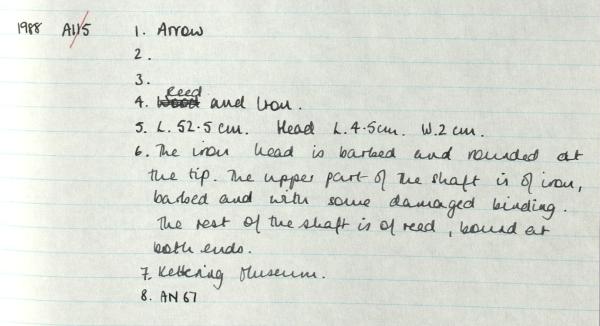 1988 A115 1. Arrow
2.
3.
Reed
4. wood and Iron.
5. L. 52.5 cm. Head L. 4.5cm. W. 2 cm.
6. The iron head is barbed and rounded at
the tip. The upper part of the shaft is of iron,
barbed and with some damaged binding.
The rest of the shaft is of reed, bound at
both ends.
7. Kettering Museum.
8. AN 67